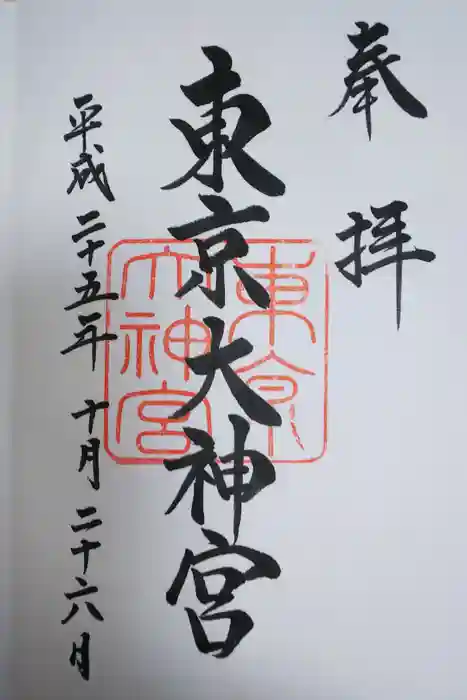 奉拝
東京大神宮
平成二十五年十月二十六日
東京
大神宮